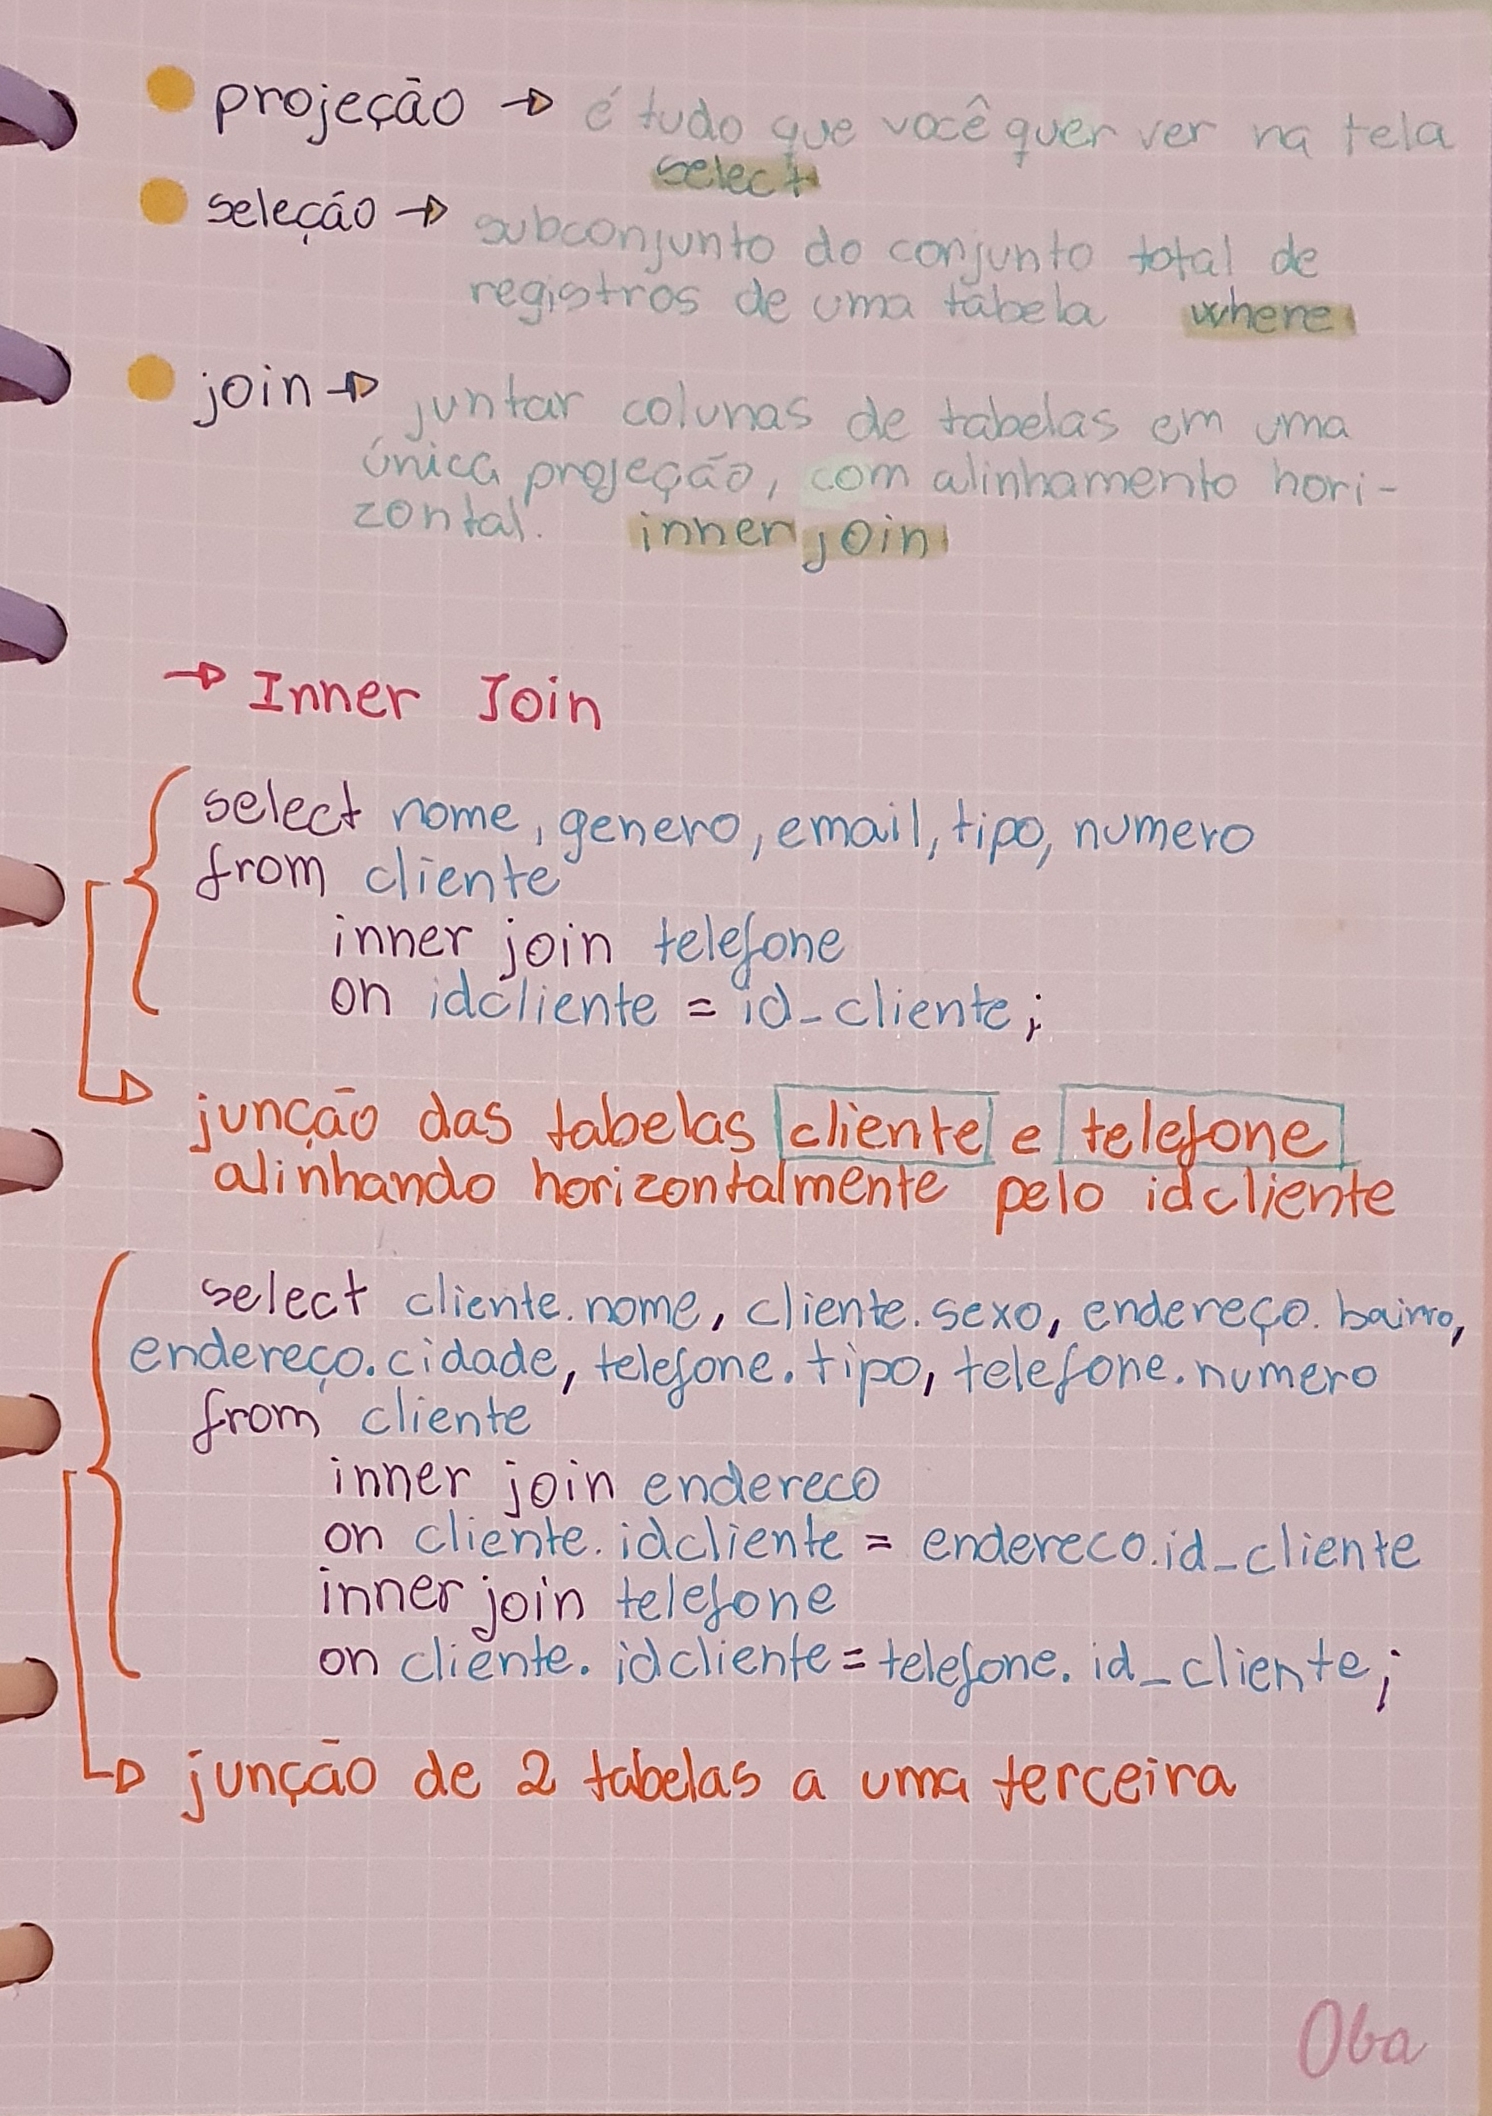 projeção → é tudo que você quer ver na tela
select
seleção → subconjunto do conjunto total de
registros de uma tabela where
join → juntar colunas de tabelas em uma
única projeção, com alinhamento hori-
zontal. inner join
→ Inner Join
select nome, genero, email, tipo, numero
from cliente
inner join telefone
on idcliente = id_cliente;
junção das tabelas cliente e telefone
alinhando horizontalmente pelo idcliente
select cliente.nome, cliente.sexo, endereço.bairro,
endereço.cidade, telefone.tipo, telefone.numero
from cliente
inner join endereco
on cliente.idcliente = endereco.id_cliente
inner join telefone
on cliente.idcliente = telefone.id_cliente;
junção de 2 tabelas a uma terceira
Oba